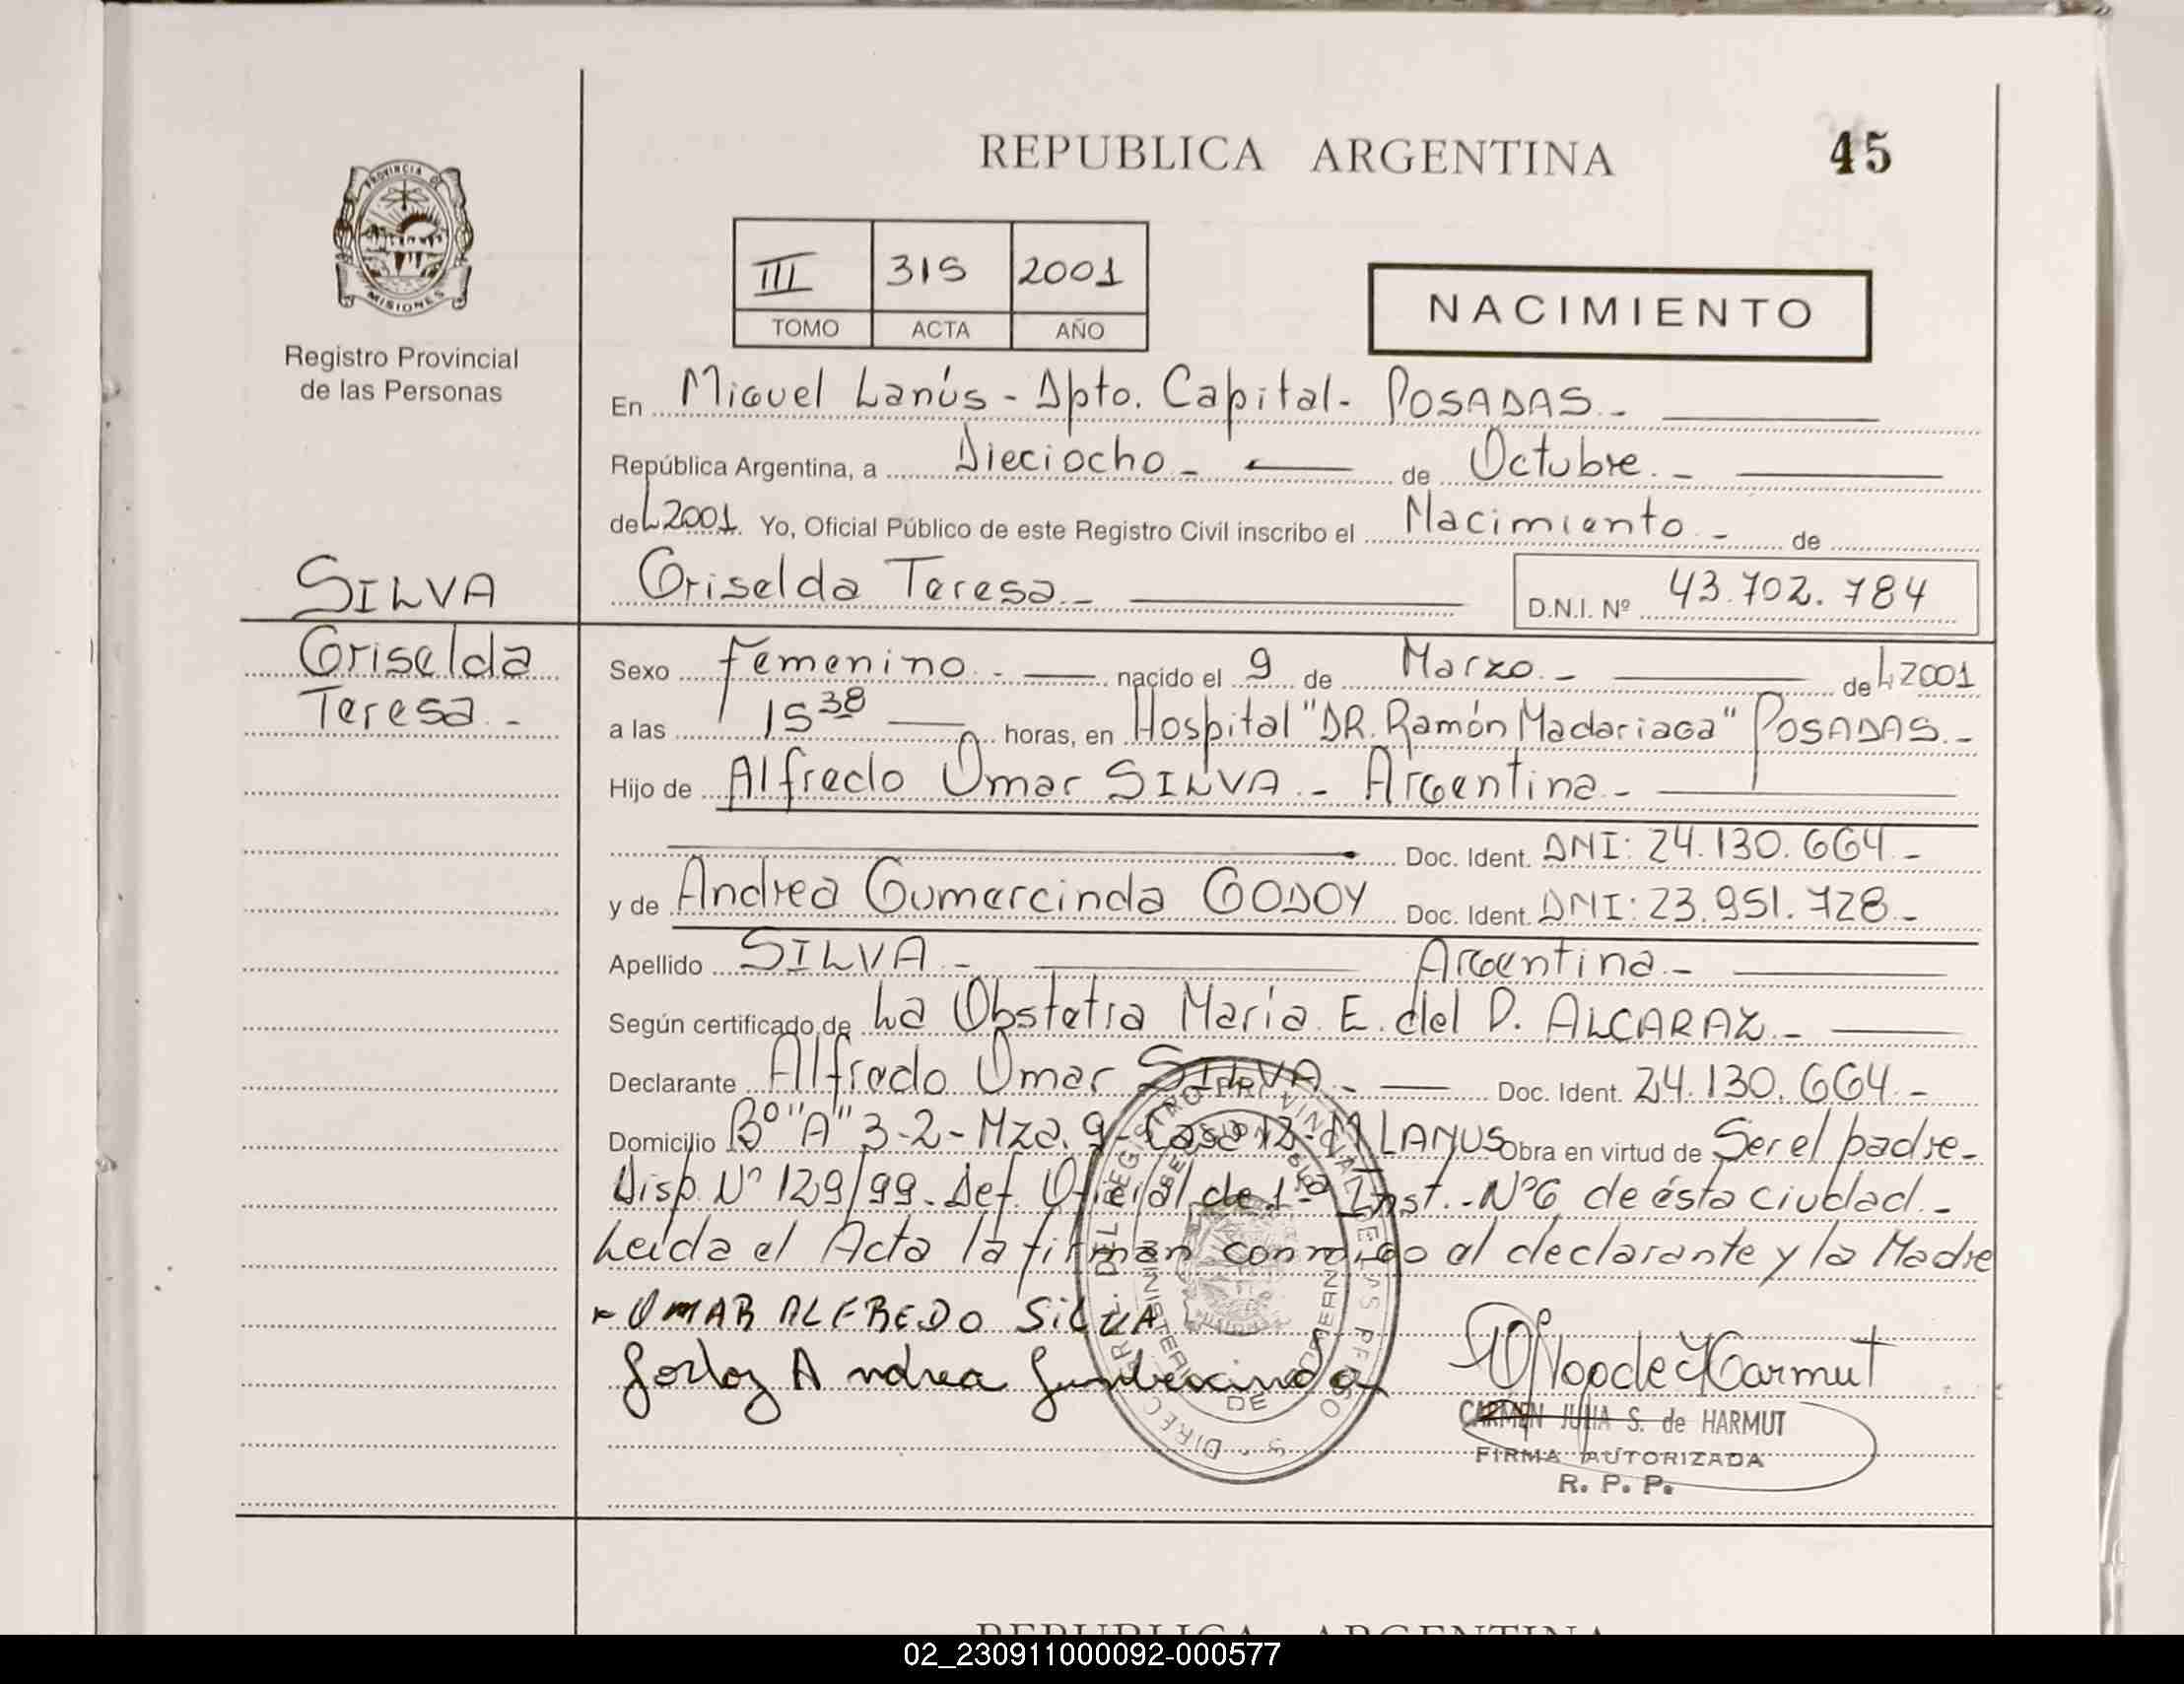 REPUBLICA ARGENTINA
45
PROVINCIA DE
MISIONES
Registro Provincial
de las Personas
III 315 2001
TOMO ACTA AÑO
NACIMIENTO
En Miguel Lanús - Dpto. Capital - POSADAS. -
República Argentina, a Dieciocho - de Octubre. -
del 2001. Yo, Oficial Público de este Registro Civil inscribo el Nacimiento - de
SILVA
Griselda Teresa. -
D.N.I. Nº 43.702.784
Griselda
Teresa. -
Sexo femenino. - nacido el 9 de Marzo. - del 2001
a las 15 38 horas, en Hospital "DR. Ramón Madariaga" POSADAS. -
Hijo de Alfredo Omar SILVA. - Argentina -
Doc. Ident. DNI: 24.130.664 -
y de Andrea Gumercinda GODOY Doc. Ident. DNI: 23.951.728 -
Apellido SILVA - Argentina -
Según certificado de La Obstetra María E. del P. ALCARAZ -
Declarante Alfredo Omar SILVA - Doc. Ident. 24.130.664 -
Domicilio Bº "A" 3-2 - Mza. 9 - Casa 12 - M LANUS Obra en virtud de Ser el padre -
Disp. Nº 129/99 - Def. Oficial de 1ª Inst. - Nº6 de ésta ciudad. -
Leída el Acta la firman conmigo el declarante y la Madre
OMAR ALFREDO SILVA
Godoy Andrea Gumercinda
CARMEN JULIA S. de HARMUT
FIRMA AUTORIZADA
R. P. P.
REPUBLICA ARGENTINA
02_230911000092-000577